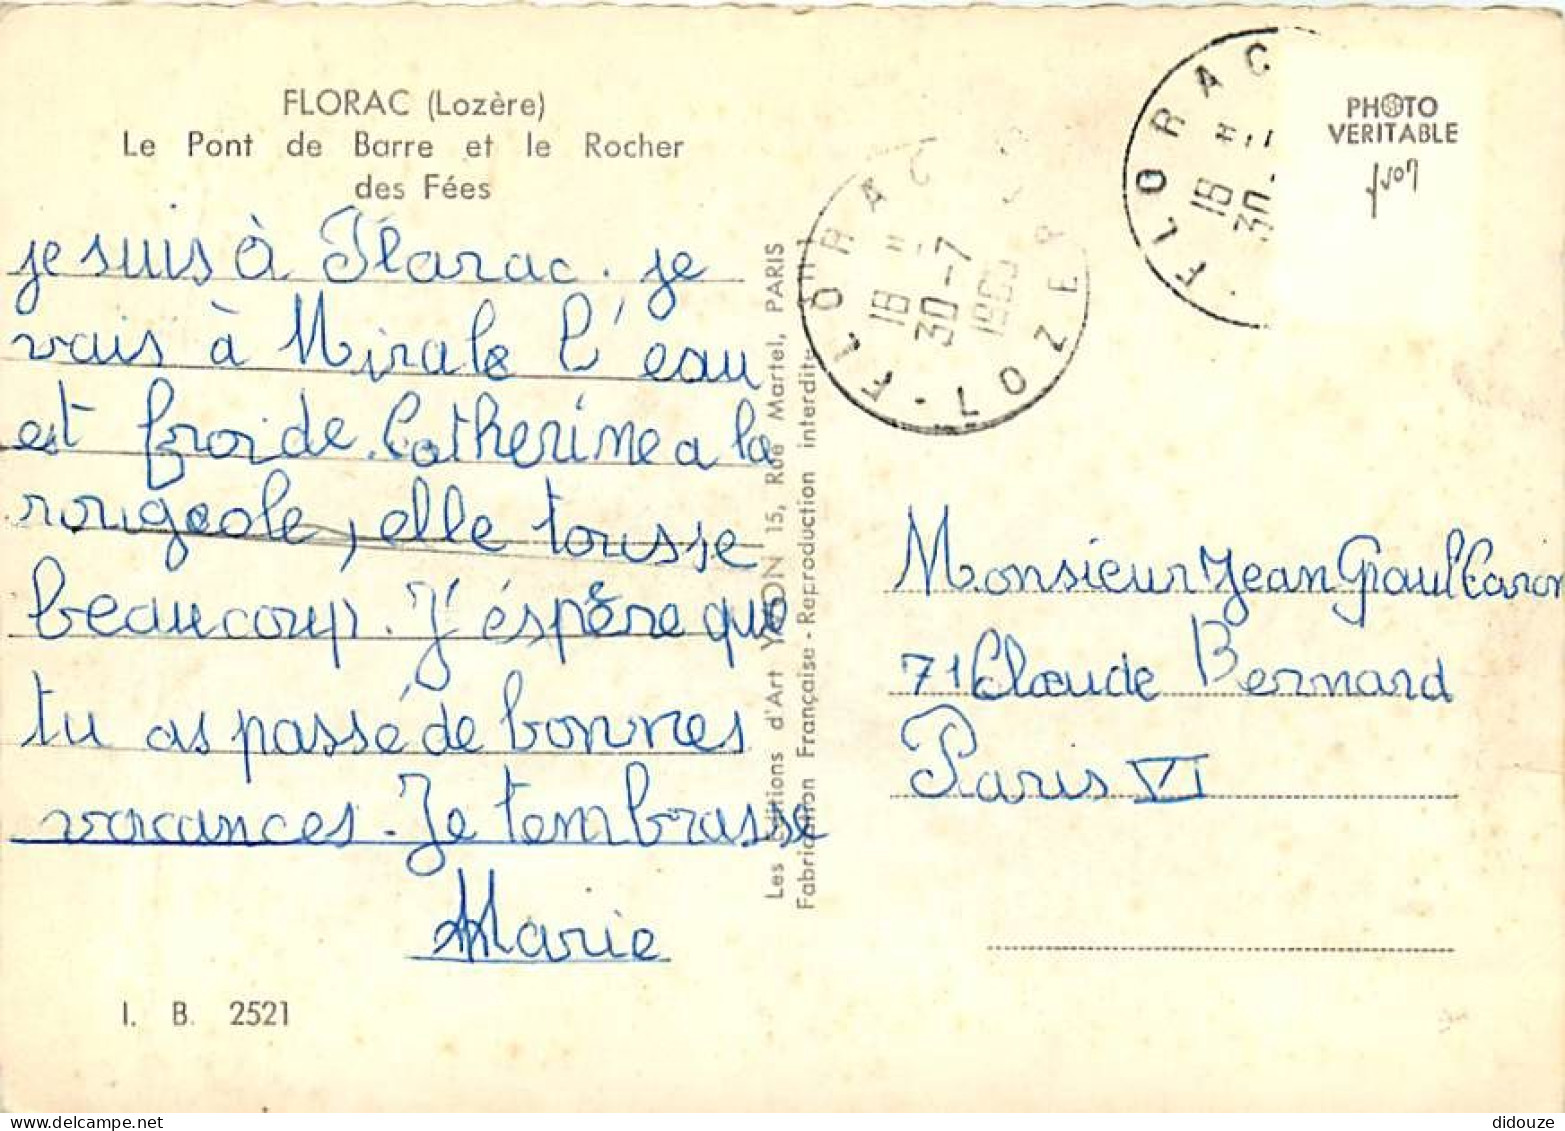 FLORAC (Lozère)
Le Pont de Barre et le Rocher
des Fées
je suis à Florac. je
vais à Mirals l'eau
est froide. Catherine a la
rougeole, elle tousse
beaucoup. J'éspère que
tu as passé de bonnes
vacances. Je tembrasse
Marie
I. B. 2521
Les Editions d'Art YVON 15, Rue Martel, PARIS
Fabrication Française - Reproduction interdite
FLORAC
18 H
30-7
LOZERE
FLORAC
18 H
30
PHOTO
VERITABLE
yvon
Monsieur Jean Paul Caron
71 Claude Bernard
Paris VI
didouze